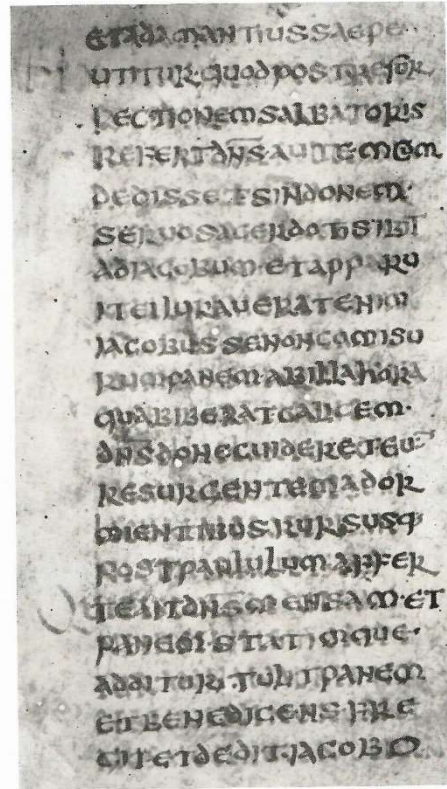 ETADAMANTIUSSAEPE
UTITUR·QUODPOSTRAESUR
RECTIONEMSALBATORIS
REFERTDN̅SAUTEMCUM
DEDISSETSINDONEM·
SERUOSACERDOTISIBIT
ADIACOBUM·ETAPPARU
ITEIIURAUERATENIM
IACOBUSSENONCOMISU
RUMPANEM·ABILLAHORA
QUABIBERATCALICEM·
DN̅SDONECUIDERETEU̅
RESURGENTEMADOR
MIENTIBUSRURSUSQ·
POSTPAULULUMAFFER
TEAITDN̅SMENSAM·ET
PANEM·STATIMQUE·
ADDITUR·TULITPANEM
ETBENEDICENS·FRE
GITETDEDITIACOBO